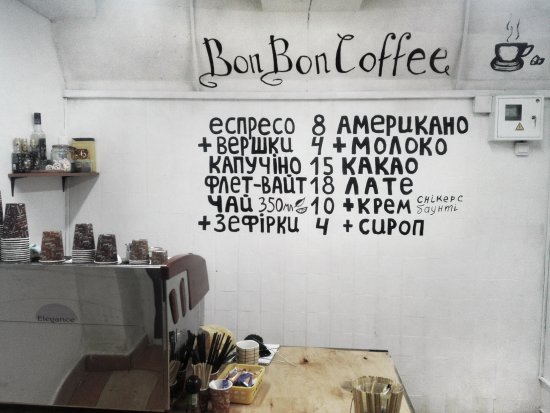 Bon Bon Coffee
еспресо 8 американо
+вершки 4 +молоко
капучіно 15 какао
флет-вайт 18 лате
чай 350мл 10 +крем снікерс баунті
+зефірки 4 +сироп
Elegance